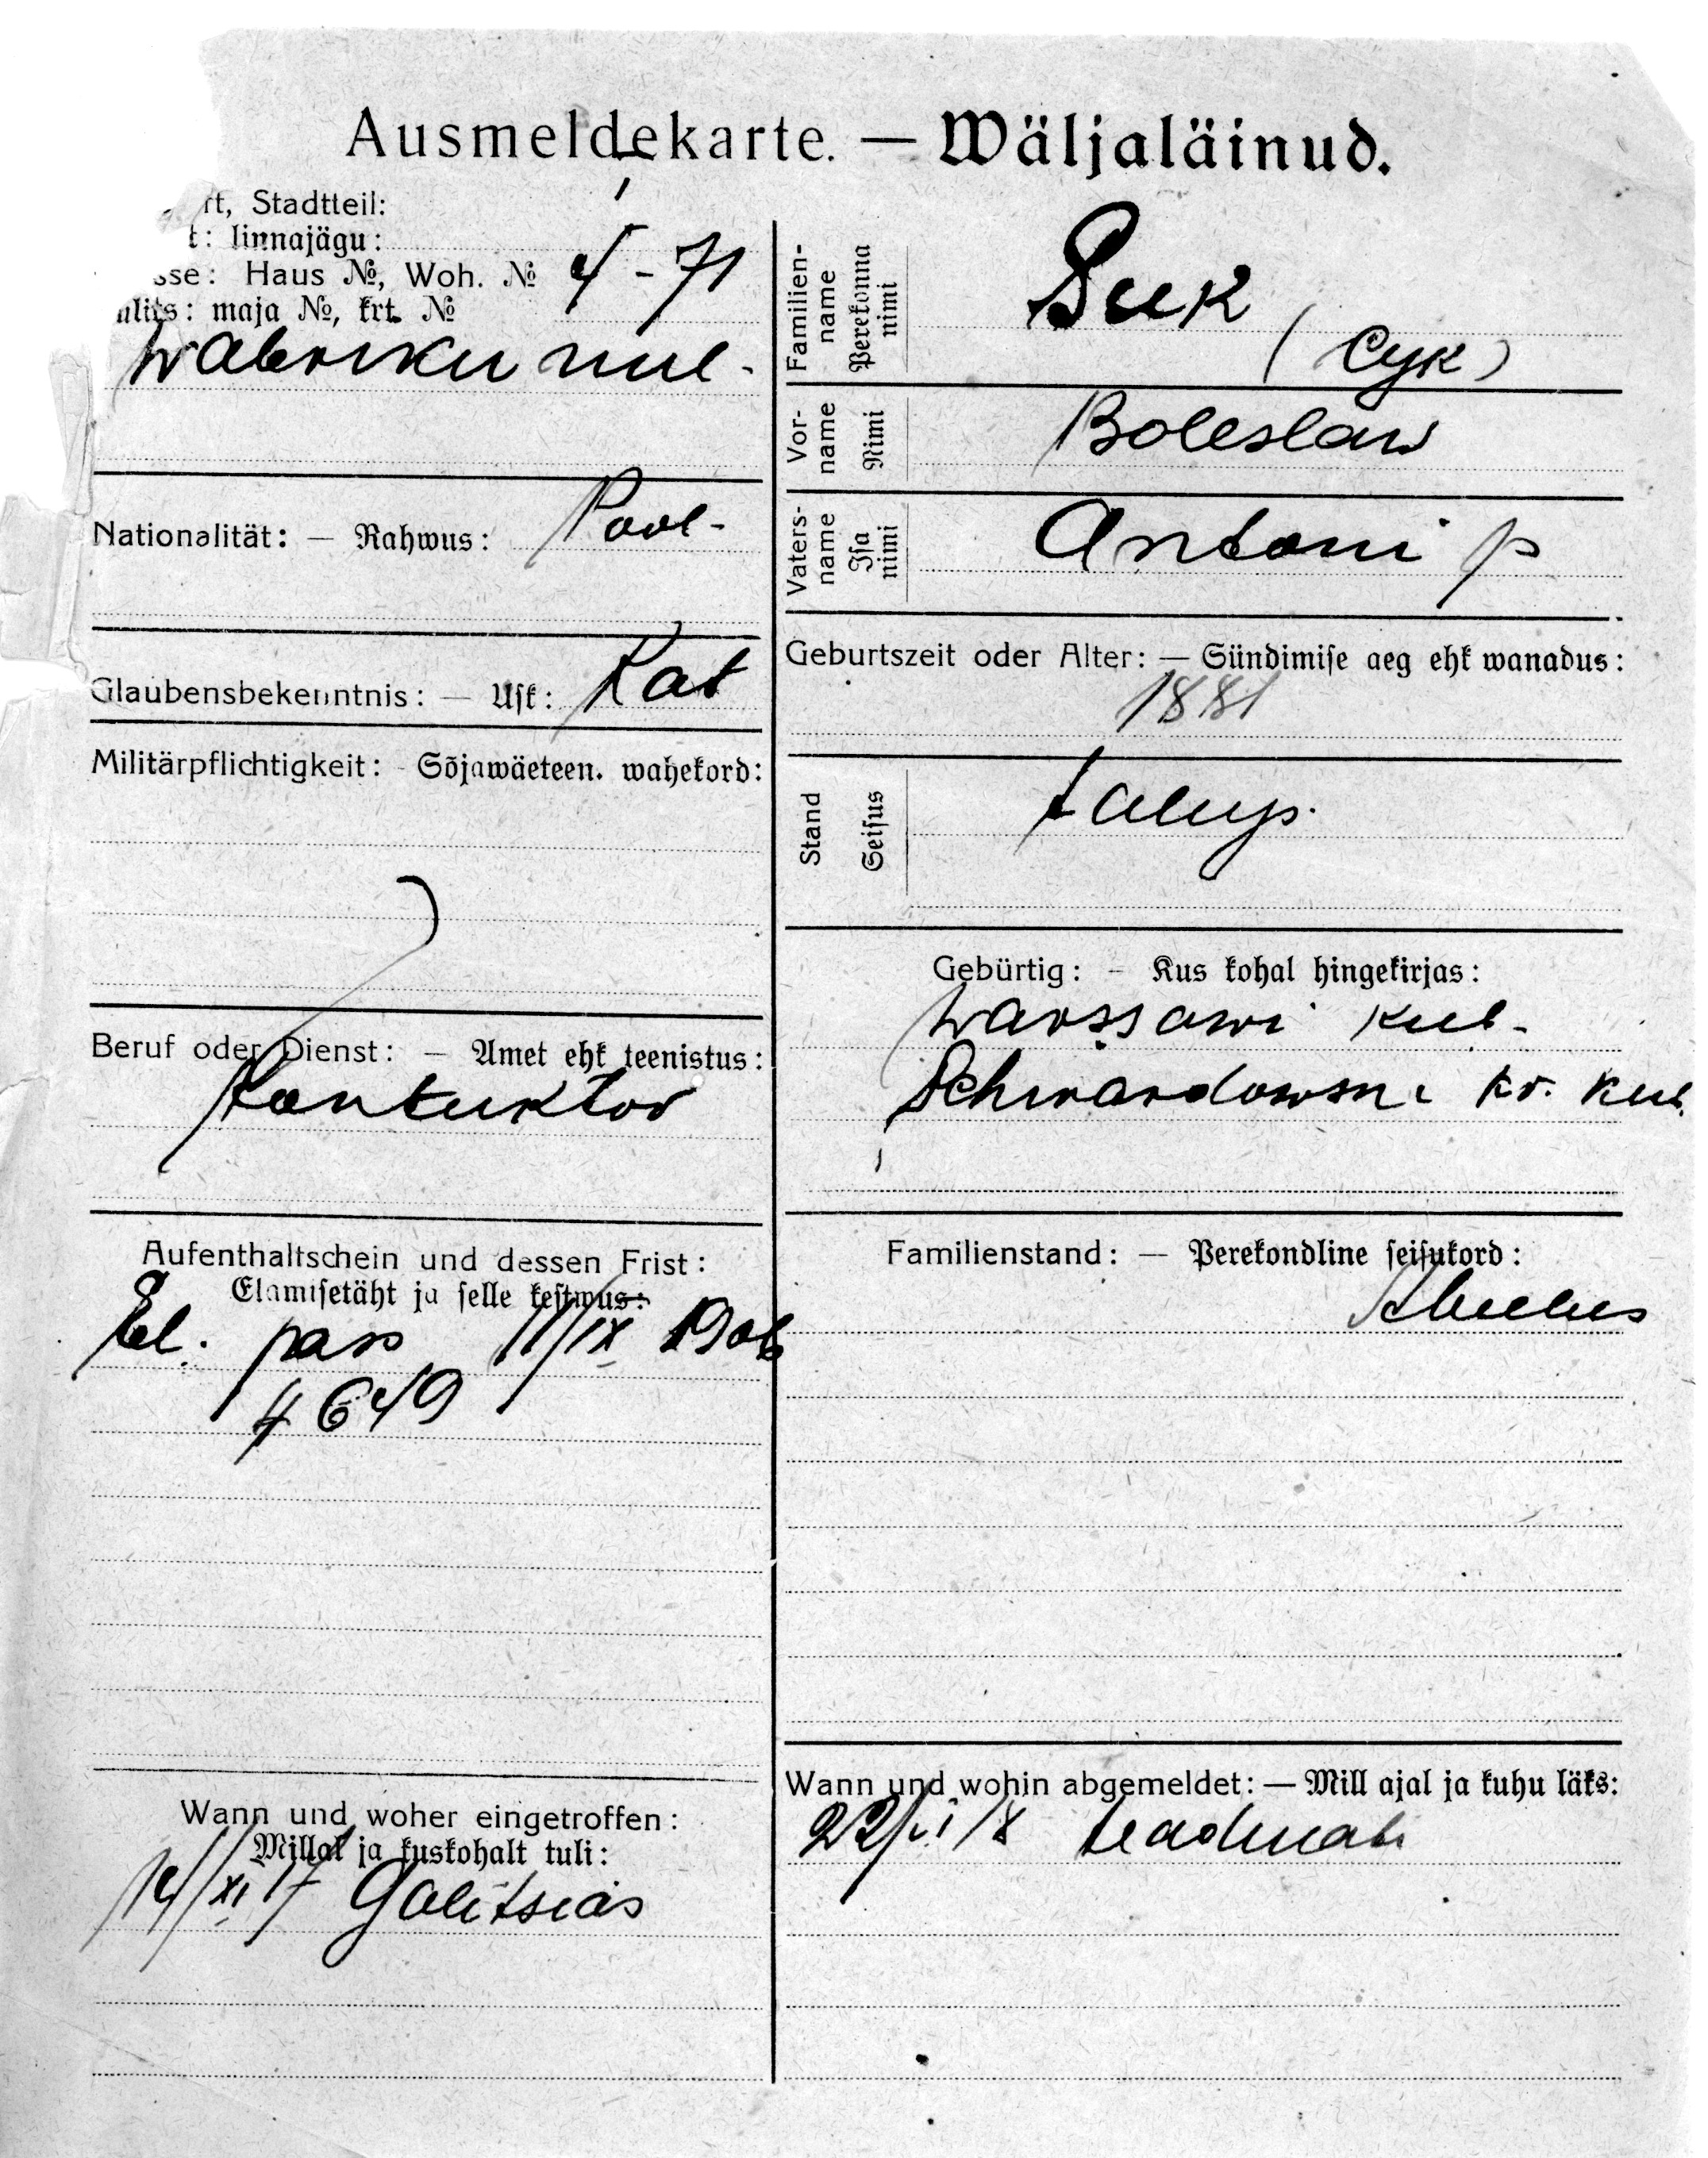 Ausmeldekarte. — Wäljaläinud.
rt, Stadtteil:
t: linnajägu:
sse: Haus №, Woh. № 4 - 71
ulits: maja №, krt. №
Wabriku uul.
Nationalität: — Rahwus: Pool.
Glaubensbekenntnis: — Usk: Kat
Militärpflichtigkeit: - Sõjawäeteen. wahekord:
Beruf oder Dienst: — Amet ehk teenistus:
Konduktor
Aufenthaltschein und dessen Frist:
Elamisetäht ja selle kestwus:
El. pass 11/IX 1906
4649
Wann und woher eingetroffen:
Millal ja kuskohalt tuli:
14/XI 17 Galitsias
Familien-name Perekonna nimi Suk
(Cyk)
Vor-name Nimi Boleslaw
Vaters-name Isa nimi Antoni p
Geburtszeit oder Alter: — Sündimise aeg ehk wanadus:
1881
Stand Seisus talup.
Gebürtig: — Kus kohal hingekirjas:
Warssawi kub.
kr. kub.
Familienstand: — Perekondline seisukord:
Abielus
Wann und wohin abgemeldet: — Mill ajal ja kuhu läks:
teadmata